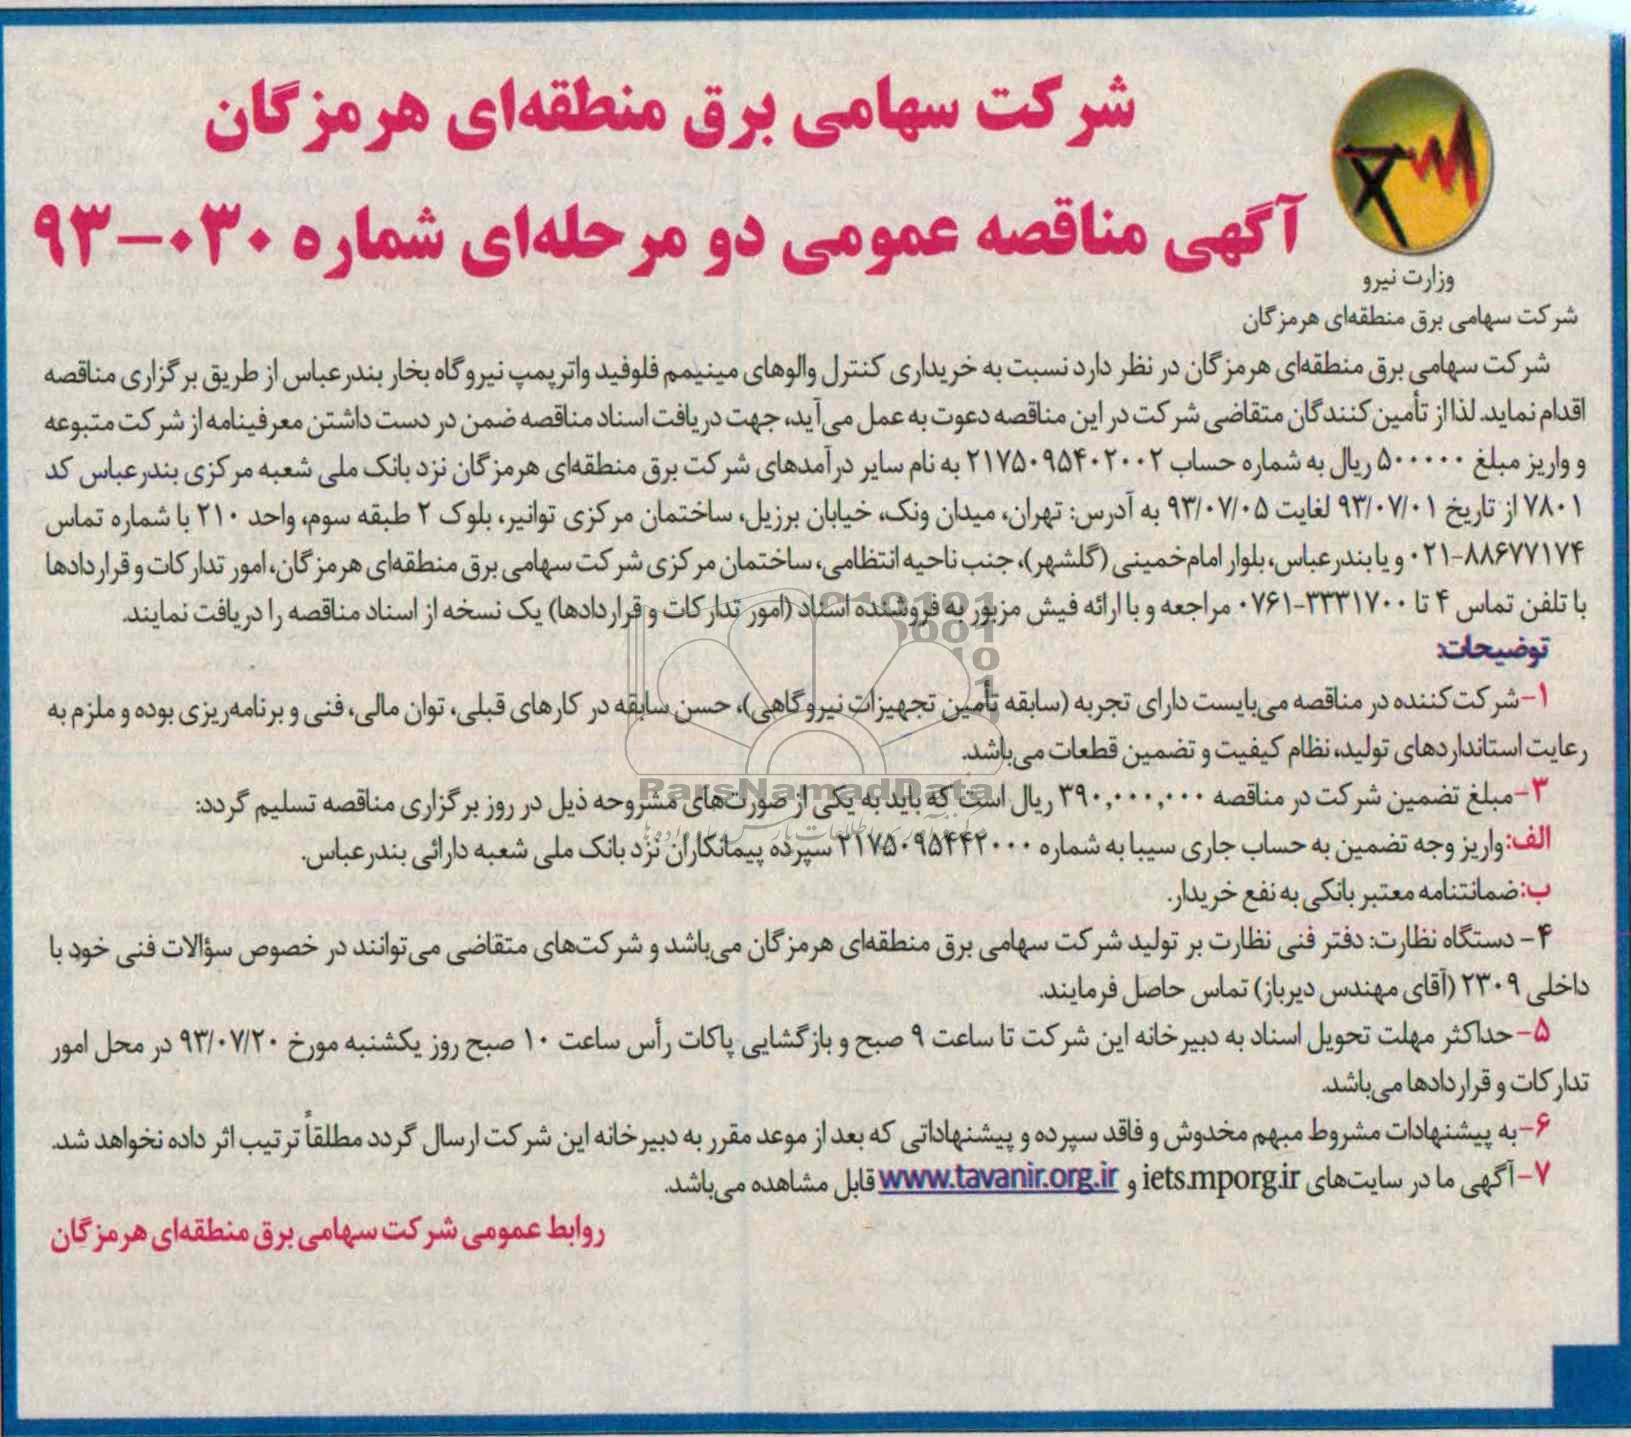 شرکت سهامی برق منطقه‌ای هرمزگان
آگهی مناقصه عمومی دو مرحله‌ای شماره ۰۳۰-۹۳
وزارت نیرو
شرکت سهامی برق منطقه‌ای هرمزگان
شرکت سهامی برق منطقه‌ای هرمزگان در نظر دارد نسبت به خریداری کنترل والوهای مینیمم فلوفید واترپمپ نیروگاه بخار بندرعباس از طریق برگزاری مناقصه
اقدام نماید. لذا از تأمین کنندگان متقاضی شرکت در این مناقصه دعوت به عمل می‌آید، جهت دریافت اسناد مناقصه ضمن در دست داشتن معرفینامه از شرکت متبوعه
و واریز مبلغ ۵۰۰۰۰۰ ریال به شماره حساب ۲۱۷۵۰۹۵۴۰۲۰۰۲ به نام سایر درآمدهای شرکت برق منطقه‌ای هرمزگان نزد بانک ملی شعبه مرکزی بندرعباس کد
۷۸۰۱ از تاریخ ۹۳/۰۷/۰۱ لغایت ۹۳/۰۷/۰۵ به آدرس: تهران، میدان ونک، خیابان برزیل، ساختمان مرکزی توانیر، بلوک ۲ طبقه سوم، واحد ۲۱۰ با شماره تماس
۰۲۱-۸۸۶۷۷۱۷۴ و یا بندرعباس، بلوار امام‌خمینی (گلشهر)، جنب ناحیه انتظامی، ساختمان مرکزی شرکت سهامی برق منطقه‌ای هرمزگان، امور تدارکات و قراردادها
با تلفن تماس ۴ تا ۰۷۶۱-۳۳۳۱۷۰۰ مراجعه و با ارائه فیش مزبور به فروشنده اسناد (امور تدارکات و قراردادها) یک نسخه از اسناد مناقصه را دریافت نمایند.
توضیحات:
۱-شرکت‌کننده در مناقصه می‌بایست دارای تجربه (سابقه تأمین تجهیزات نیروگاهی)، حسن سابقه در کارهای قبلی، توان مالی، فنی و برنامه‌ریزی بوده و ملزم به
رعایت استانداردهای تولید، نظام کیفیت و تضمین قطعات می‌باشد.
ParsNamadData
۳-مبلغ تضمین شرکت در مناقصه ۳۹۰,۰۰۰,۰۰۰ ریال است که باید به یکی از صورت‌های مشروحه ذیل در روز برگزاری مناقصه تسلیم گردد:
الف:واریز وجه تضمین به حساب جاری سیبا به شماره ۲۱۷۵۰۹۵۴۴۲۰۰۰ سپرده پیمانکاران نزد بانک ملی شعبه دارائی بندرعباس.
ب:ضمانتنامه معتبر بانکی به نفع خریدار.
۴- دستگاه نظارت: دفتر فنی نظارت بر تولید شرکت سهامی برق منطقه‌ای هرمزگان می‌باشد و شرکت‌های متقاضی می‌توانند در خصوص سؤالات فنی خود با
داخلی ۲۳۰۹ (آقای مهندس دیرباز) تماس حاصل فرمایند.
۵-حداکثر مهلت تحویل اسناد به دبیرخانه این شرکت تا ساعت ۹ صبح و بازگشایی پاکات رأس ساعت ۱۰ صبح روز یکشنبه مورخ ۹۳/۰۷/۲۰ در محل امور
تدارکات و قراردادها می‌باشد.
۶-به پیشنهادات مشروط مبهم مخدوش و فاقد سپرده و پیشنهاداتی که بعد از موعد مقرر به دبیرخانه این شرکت ارسال گردد مطلقاً ترتیب اثر داده نخواهد شد.
۷-آگهی ما در سایت‌های iets.mporg.ir و www.tavanir.org.ir قابل مشاهده می‌باشد.
روابط عمومی شرکت سهامی برق منطقه‌ای هرمزگان